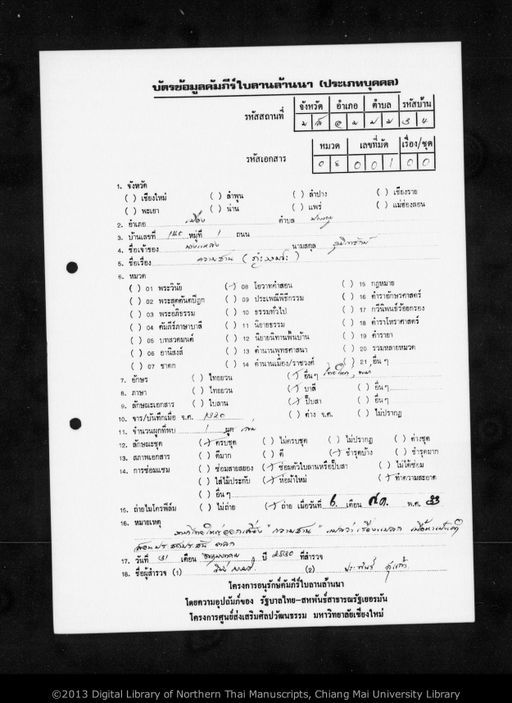 บัตรข้อมูลคัมภีร์ใบลานล้านนา (ประเภทบุคคล)
จังหวัด อำเภอ ตำบล รหัสบ้าน
รหัสสถานที่
หมวด เลขที่มัด เรื่อง/ชุด
รหัสเอกสาร 0 8 0 0 1 0 0
1. จังหวัด
( ) เชียงใหม่ ( ) ลำพูน ( ) ลำปาง ( ) เชียงราย
( ) พะเยา ( ) น่าน ( ) แพร่ ( ) แม่ฮ่องสอน
2. อำเภอ เมือง ตำบล
3. บ้านเลขที่ หมู่ที่ 1 ถนน
4. ชื่อเจ้าของ นามสกุล
5. ชื่อเรื่อง
6. หมวด
( ) 01 พระวินัย (/) 08 โอวาทคำสอน ( ) 15 กฎหมาย
( ) 02 พระสุตตันตปิฎก ( ) 09 ประเพณีพิธีกรรม ( ) 16 ตำราอักษรศาสตร์
( ) 03 พระอภิธรรม ( ) 10 ธรรมทั่วไป ( ) 17 กวีนิพนธ์ร้อยกรอง
( ) 04 คัมภีร์ภาษาบาลี ( ) 11 นิยายธรรม ( ) 18 ตำราโหราศาสตร์
( ) 05 บทสวดมนต์ ( ) 12 นิยายนิทานพื้นบ้าน ( ) 19 ตำรายา
( ) 06 อานิสงส์ ( ) 13 ตำนานพุทธศาสนา ( ) 20 รวมหลายหมวด
( ) 07 ชาดก ( ) 14 ตำนานเมือง/ราชวงศ์ ( ) 21 อื่นๆ
7. อักษร ( ) ไทยยวน (/) อื่นๆ
8. ภาษา ( ) ไทยยวน (/) บาลี ( ) อื่นๆ
9. ลักษณะเอกสาร ( ) ใบลาน (/) ปั๊บสา ( ) อื่นๆ
10. จาร/บันทึกเมื่อ จ.ศ. 1320 ( ) ต่าง จ.ศ. ( ) ไม่ปรากฏ
11. จำนวนผูกที่พบ 1 ผูก
12. ลักษณะชุด (/) ครบชุด ( ) ไม่ครบชุด ( ) ไม่ปรากฏ ( ) ต่างชุด
13. สภาพเอกสาร ( ) ดีมาก ( ) ดี (/) ชำรุดบ้าง ( ) ชำรุดมาก
14. การซ่อมแซม ( ) ซ่อมสายสยอง (/) ซ่อมตัวใบลานหรือปั๊บสา ( ) ไม่ได้ซ่อม
( ) ใส่ไม้ประกับ (/) ห่อผ้าใหม่ (/) ทำความสะอาด
( ) อื่นๆ
15. ถ่ายไมโครฟิล์ม ( ) ไม่ถ่าย (/) ถ่าย เมื่อวันที่ 6 เดือน ต.ค. พ.ศ. 33
16. หมายเหตุ
17. วันที่ 31 เดือน ปี 2530 ที่สำรวจ
18. ชื่อผู้สำรวจ (1) (2)
โครงการอนุรักษ์คัมภีร์ใบลานล้านนา
โดยความอุปถัมภ์ของ รัฐบาลไทย-สหพันธ์สาธารณรัฐเยอรมัน
โครงการศูนย์ส่งเสริมศิลปวัฒนธรรม มหาวิทยาลัยเชียงใหม่
©2013 Digital Library of Northern Thai Manuscripts, Chiang Mai University Library